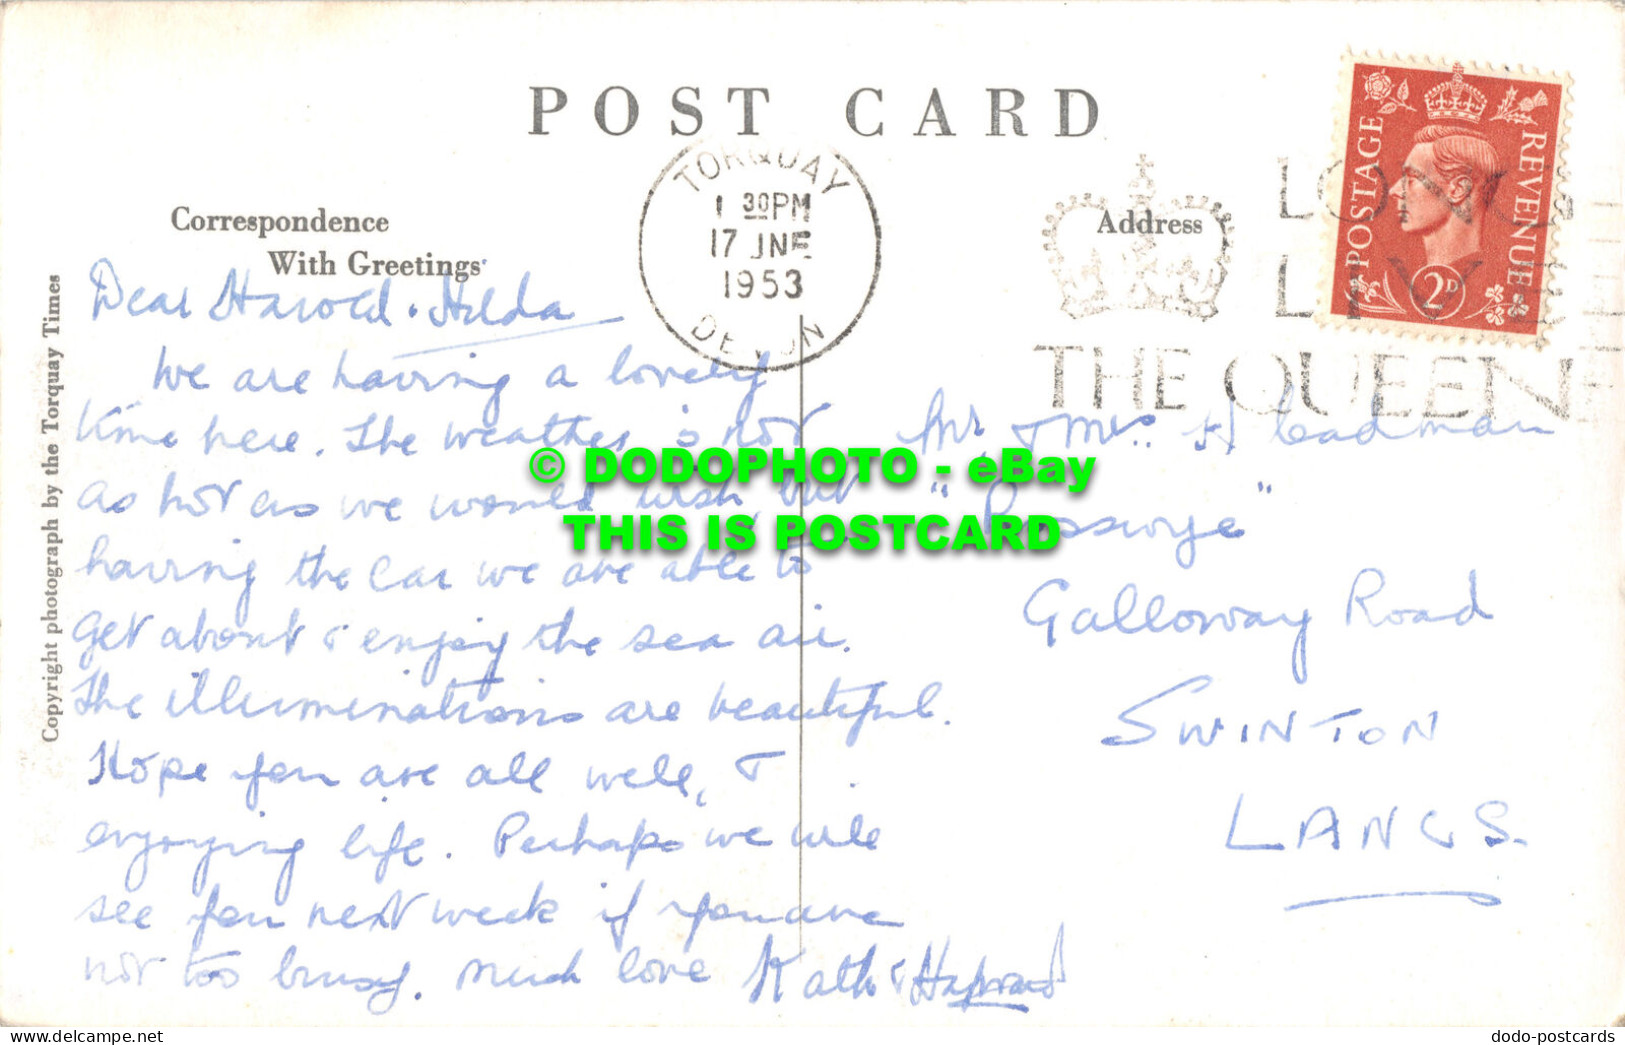 POST CARD
TORQUAY
1 30PM
17 JNE
1953
DEVON
LONG
LIVE
THE QUEEN
POSTAGE
REVENUE
2D
Correspondence
With Greetings
Address
Copyright photograph by the Torquay Times
Dear Harold & Hilda
We are having a lovely
time here. The weather is not
as hot as we would wish, but
having the car we are able to
get about & enjoy the sea air.
The illuminations are beautiful.
Hope you are all well, &
enjoying life. Perhaps we will
see you next week if you are
not too busy. Much love Kath &
Mr & Mrs H Cadman
Galloway Road
SWINTON
LANCS.
© DODOPHOTO - eBay
THIS IS POSTCARD
dodo-postcards